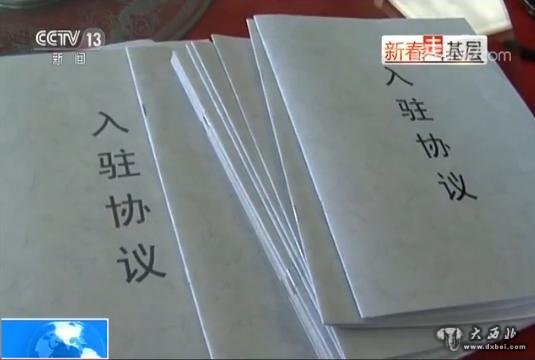 CCTV 13
新闻
新春走基层
入驻协议
入驻协议
大西北
www.dxbei.com